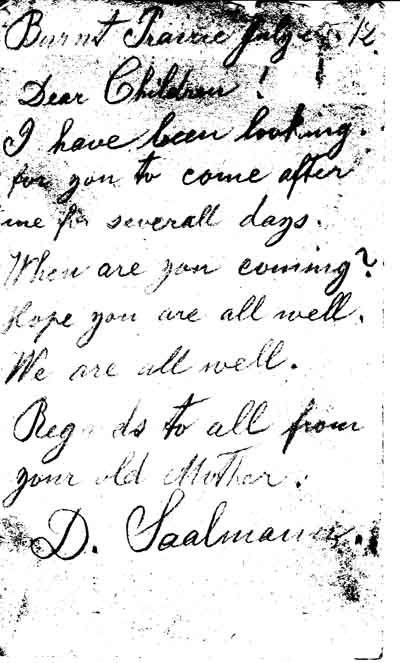 Burnt Prairie July 12.
Dear Children!
I have been looking.
for you to come after
me for severall days.
When are you coming?
Hope you are all well.
We are all well.
Regards to all from
your old Mother.
D. Saalmann.